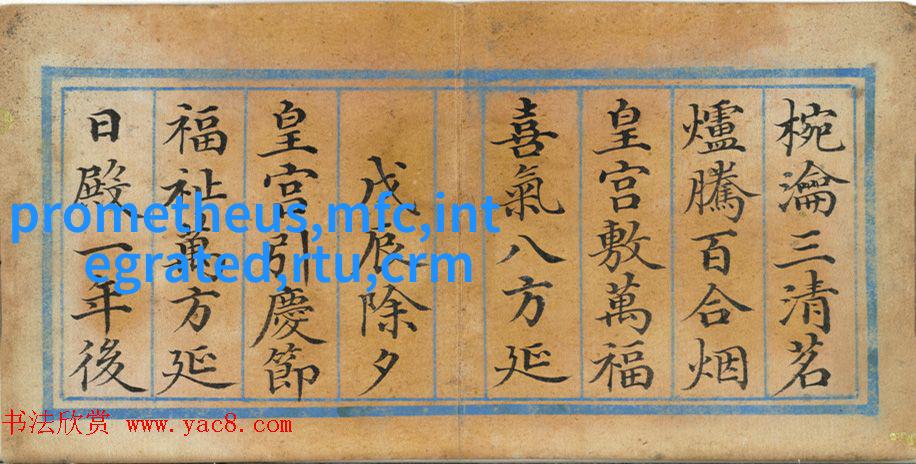 椀瀹三清茗
爐騰百合烟
皇宮敷萬福
喜氣八方延
戊辰除夕
皇宮引慶節
福祉萬方延
日殿一年後
prometheus,mfc,int
egrated,rtu,crm
书法欣赏 www.yac8.com